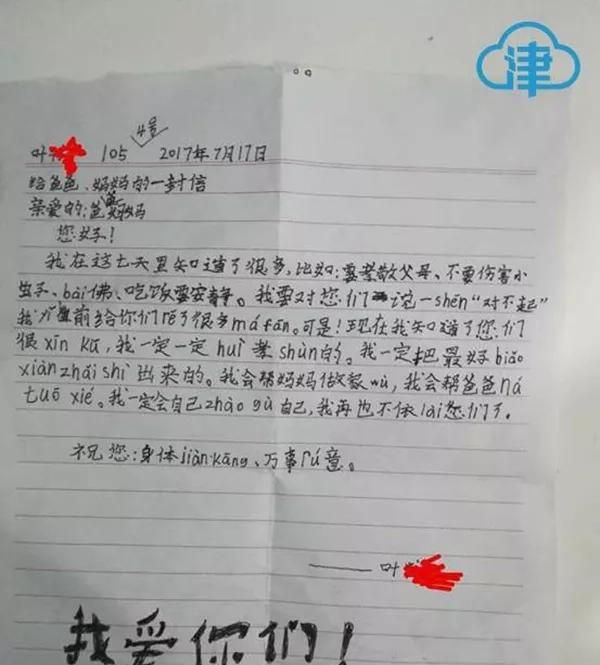 津
4号
叶 105 2017年7月17日
给爸爸、妈妈的一封信
亲爱的:爸妈妈
您好!
我在这七天里知道了很多,比如:要孝敬父母、不要伤害小
虫子、bài佛、吃饭要安静。我要对您们说一shēn“对不起”
我以前给你们了很多máfān。可是!现在我知道了您们
很xīn kǔ,我一定一定huì孝shùn的。我一定把最好biǎo
xiànzhǎishì出来的。我会帮妈妈做家wù,我会帮爸爸ná
tuō xié。我一定会自己zhào gù自己,我再也不依lài您们了。
祝您:身体jiàn·kāng、万事rú意。
——叶
我爱你们!